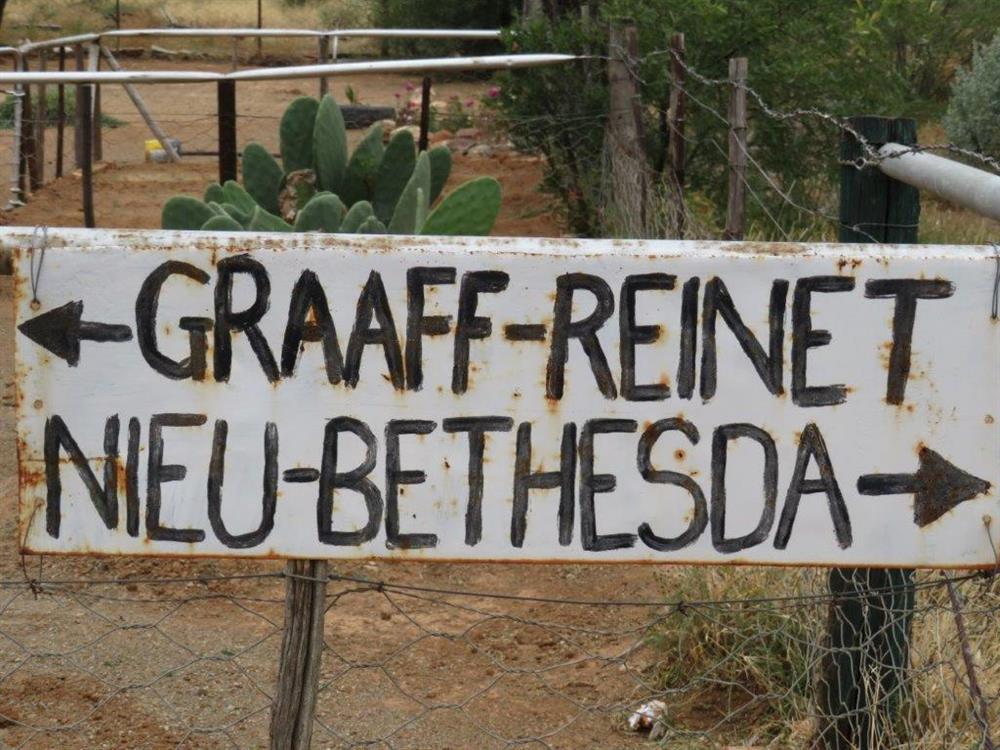 ← GRAAFF-REINET
NIEU-BETHESDA →